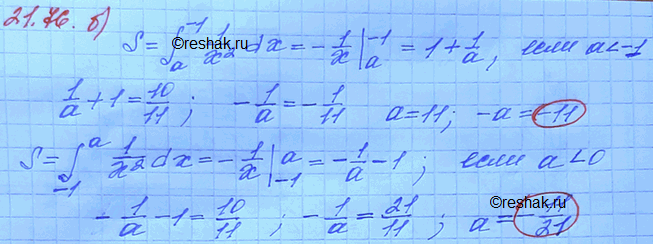 21.76. б)
S = ∫_a^{-1} 1/x² dx = -1/x |_a^{-1} = 1 + 1/a, если a < -1
©reshak.ru
1/a + 1 = 10/11; -1/a = -1/11 a = 11; -a = -11
S = ∫_{-1}^a 1/x² dx = -1/x |_{-1}^a = -1/a - 1; если a < 0
-1/a - 1 = 10/11; -1/a = 21/11; a = -11/21
©reshak.ru